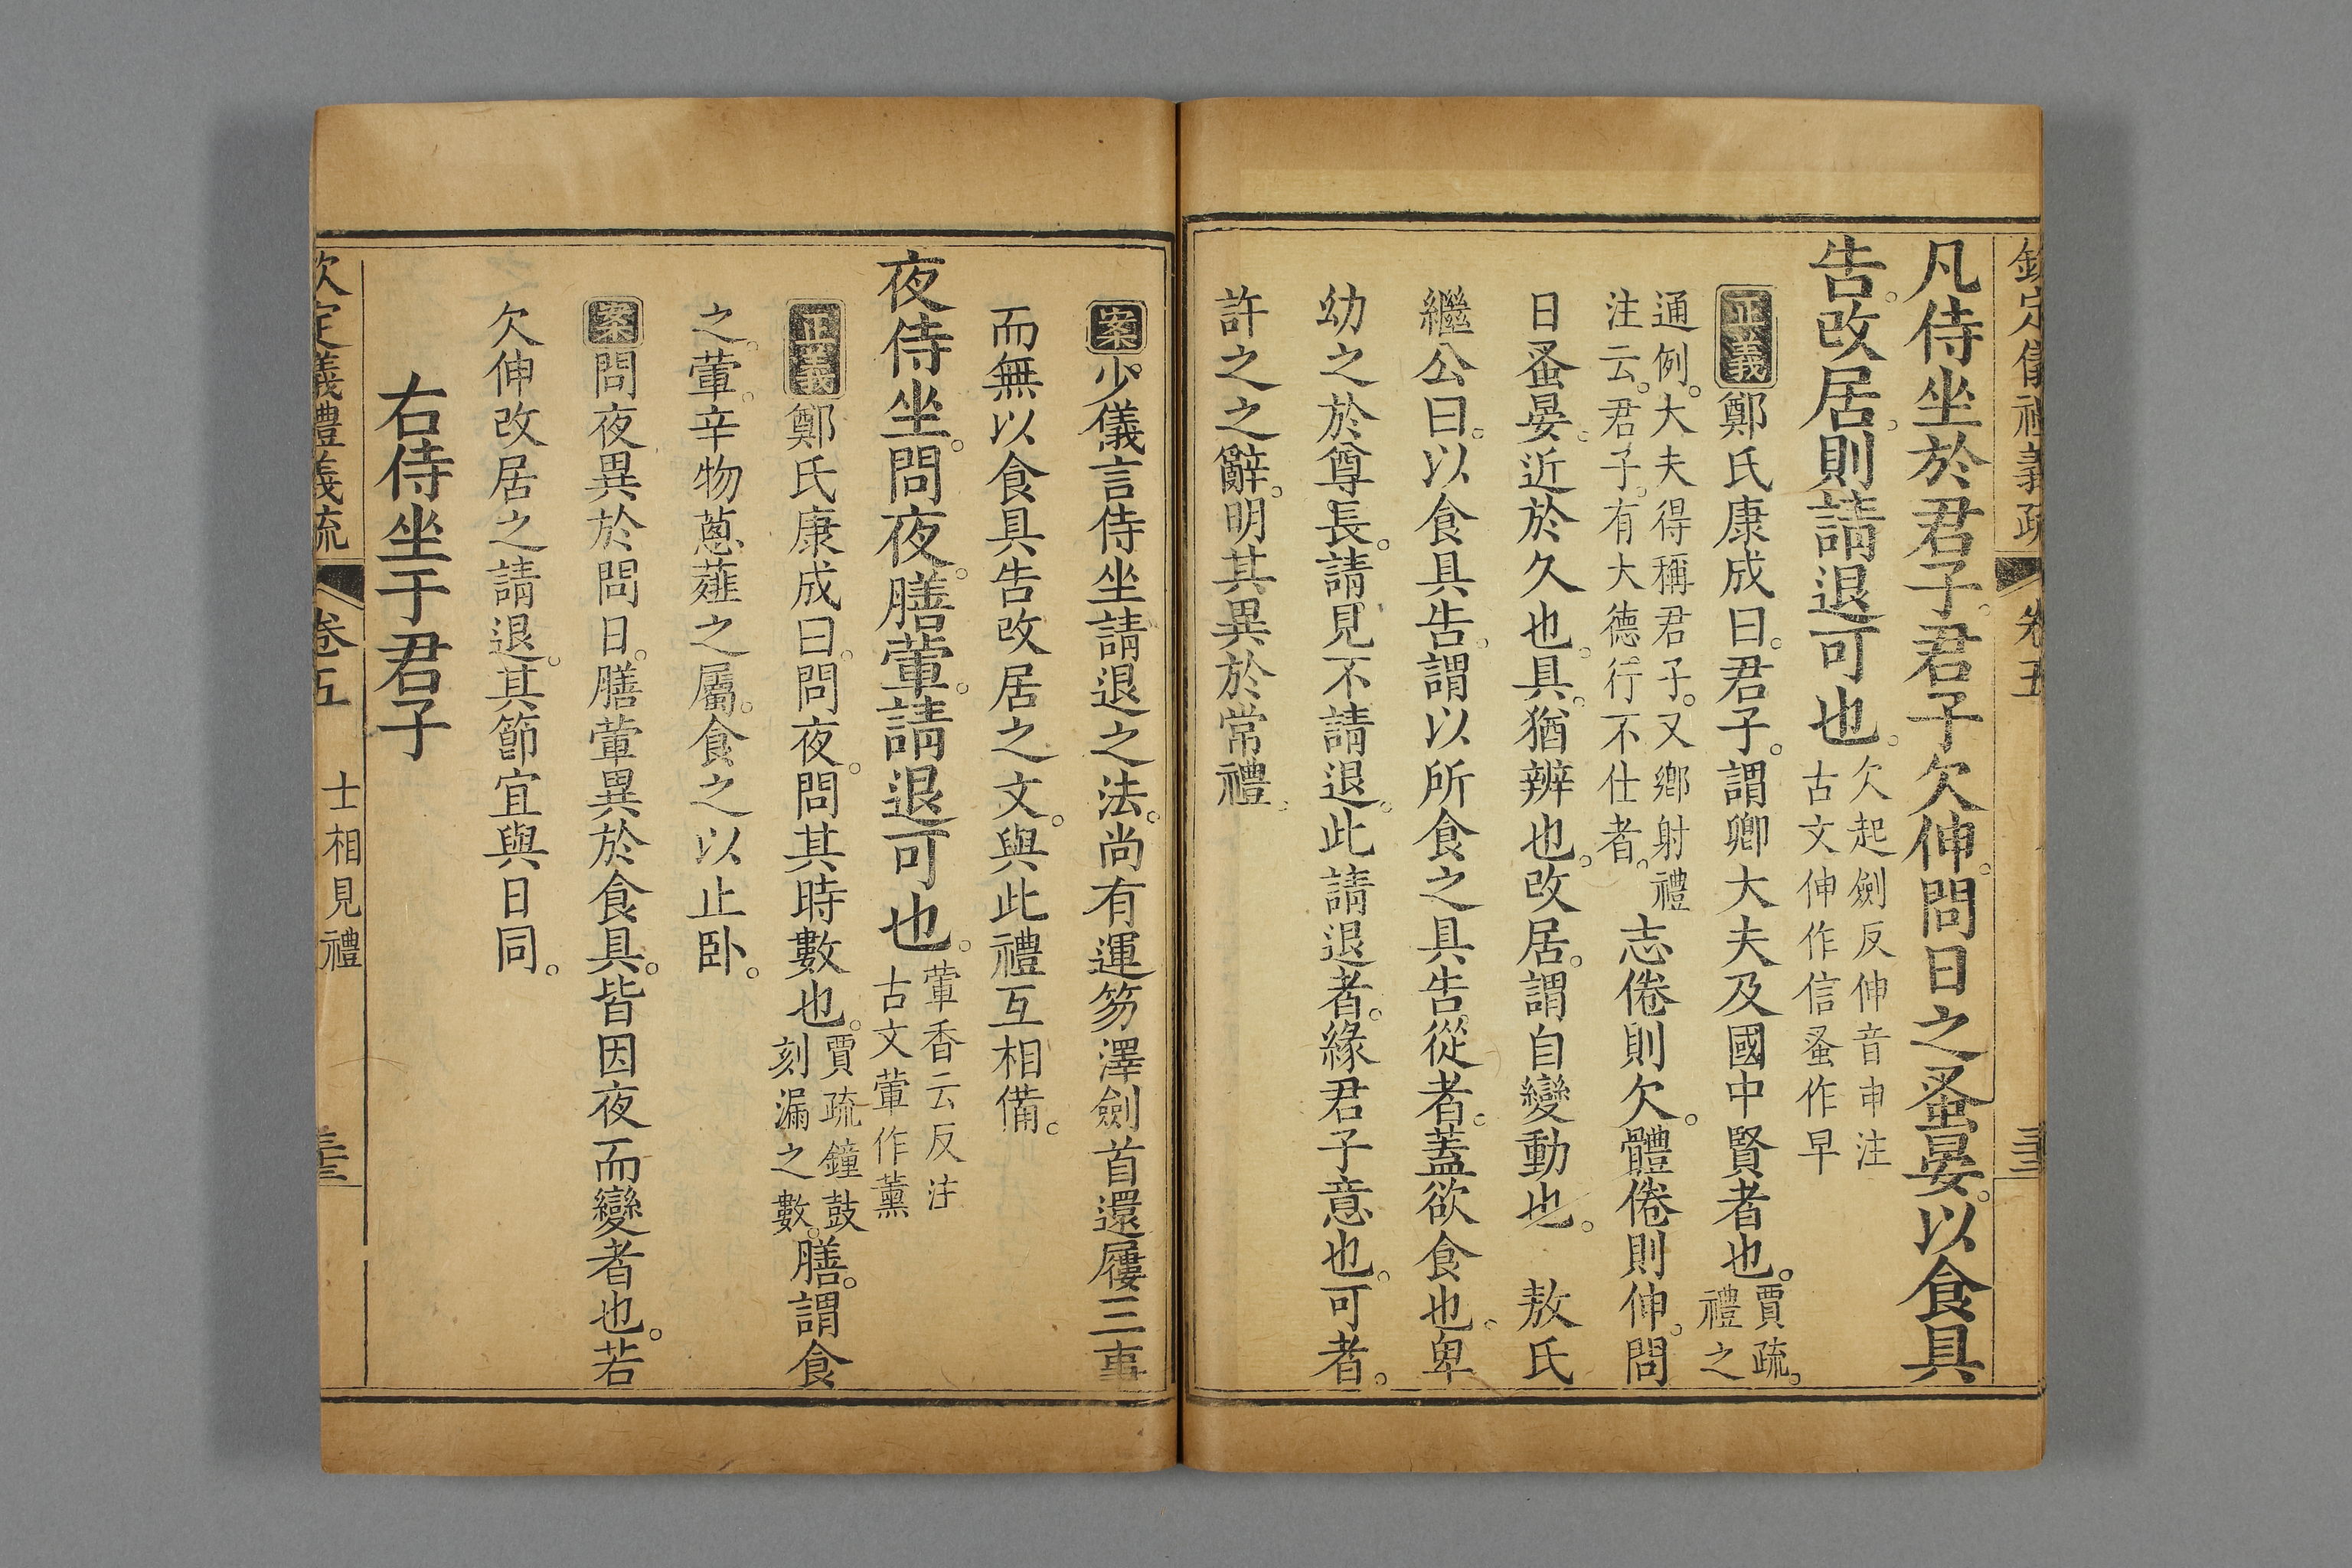 欽定儀禮義疏 卷五
凡侍坐於君子。君子欠伸。問日之蚤晏。以食具
告。改居。則請退可也。
欠起劍反伸音申注
古文伸作信蚤作早
正義 鄭氏康成曰。君子。謂卿大夫及國中賢者也。
賈疏。
禮之
通例。大夫得稱君子。又鄉射禮
注云。君子。有大德行不仕者。
志倦則欠。體倦則伸。問
日蚤晏。近於久也。具。猶辨也。改居。謂自變動也。 敖氏
繼公曰。以食具告。謂以所食之具告。從者。蓋欲食也。卑
幼之於尊長。請見不請退。此請退者。緣君子意也。可者。
許之之辭。明其異於常禮。
案 少儀言侍坐請退之法。尚有運笏澤劍首還屨三事
而無以食具告改居之文。與此禮互相備。
夜侍坐。問夜。膳葷。請退可也。
葷香云反注
古文葷作薰
正義 鄭氏康成曰。問夜。問其時數也。
賈疏鐘鼓
刻漏之數。
膳。謂食
之。葷。辛物蔥薤之屬。食之以止臥。
案 問夜異於問日。膳葷異於食具。皆因夜而變者也。若
欠伸改居之請退。其節宜與日同。
右侍坐于君子
欽定儀禮義疏 卷五 士相見禮